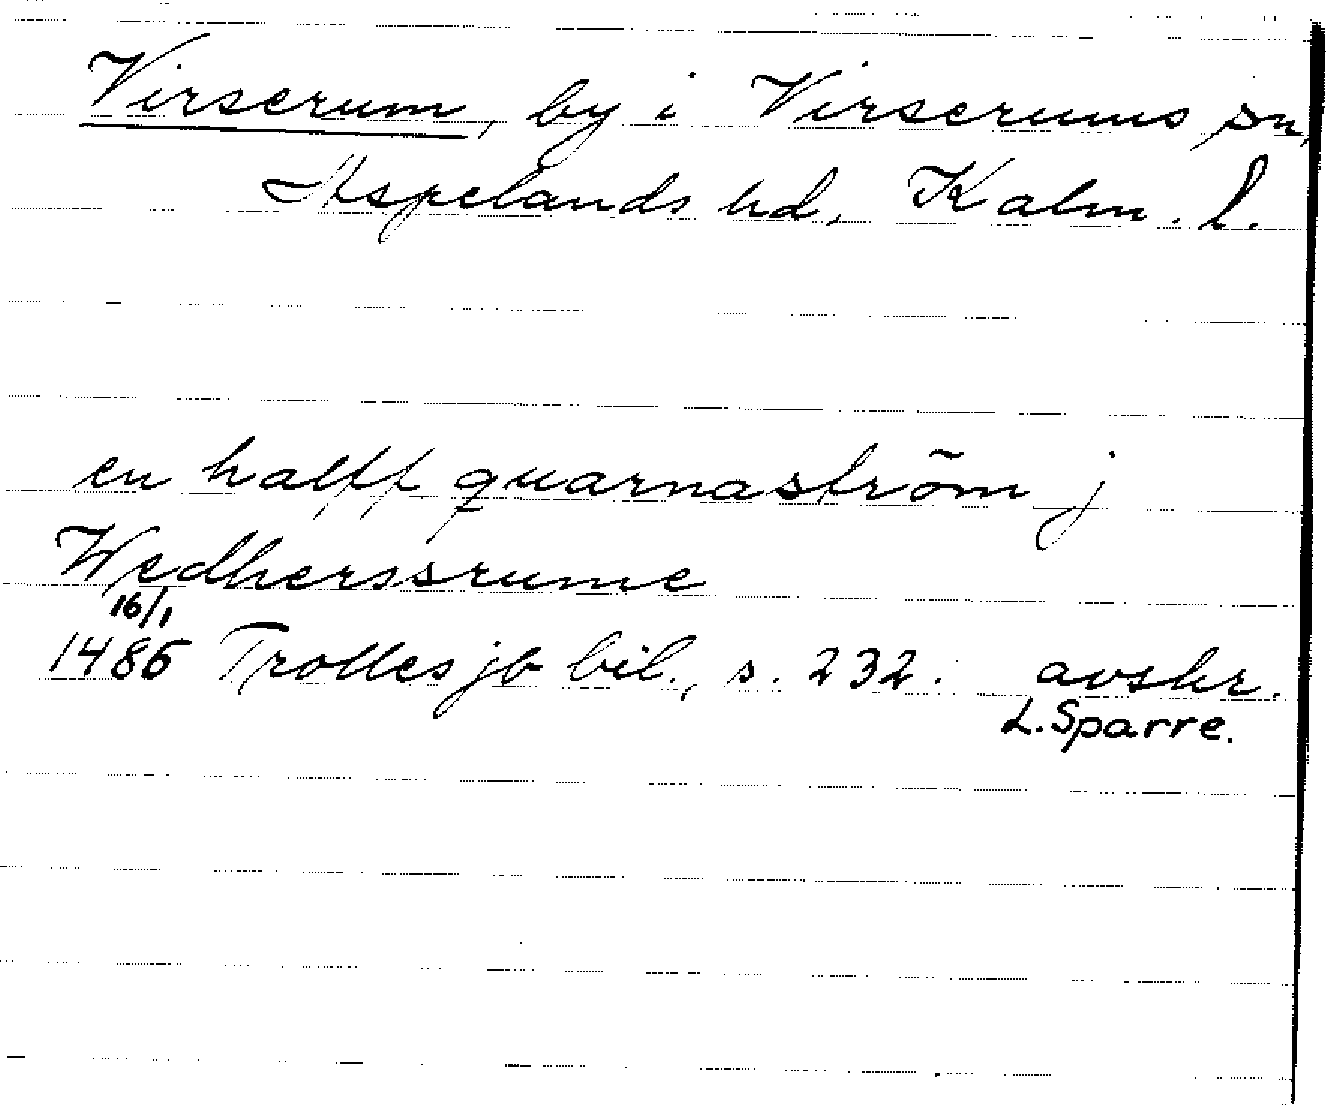 Virserum, by i Virserums sn,
Aspelands hd, Kalm. l.
en halff quarnaström j
Wedherssrume
16/1
1486 Trolles jb bil., s. 232. avskr.
L. Sparre.